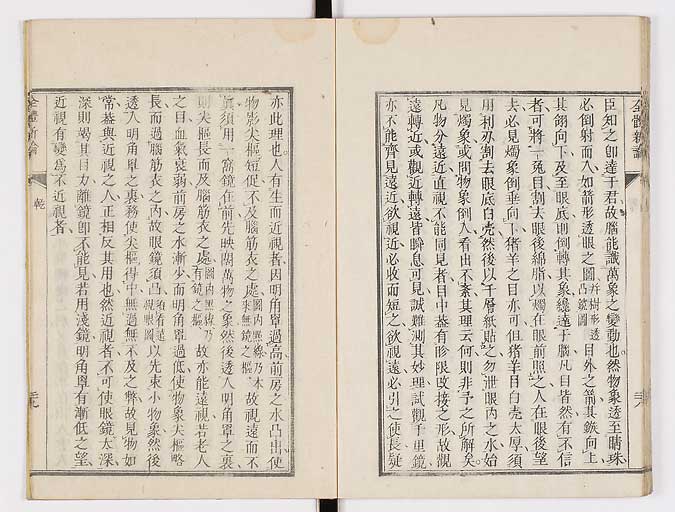 全體新論
臣知之卽達于君故腦能識萬象之變動也然物象透至睛珠
必倒射而入如箭形透眼之圖幷樹形透凸鏡圖目外之箭其鏃向上
其翎向下及至眼底則倒轉其象纔達于腦凡目皆然有不信
者可將一兔目割去眼後綿脂以燭在眼前照之人在眼後望
去必見燭象倒垂向下猪羊之目亦可但猪羊目白壳太厚須
用利刀割去眼底白壳然後以千層紙貼之勿泄眼內之水始
見燭象或問物象倒入看出不紊其理云何則非予之所解矣
凡物分遠近直視不能同見者目中葢有睁限改接之形故覩
遠轉近或觀近轉遠皆瞬息可見誠難測其妙理試觀千里鏡
亦不能齊見遠近欲視近必收而短之欲視遠必引之使長疑
亦此理也人有生而近視者因明角罩過高前房之水凸出使
物影尖樞短促不及腦筋衣之處圖內黑線乃本來無鏡之樞故視遠而不
眞須用一窩鏡在前先映闊萬物之象然後透入明角罩之裏
則尖樞長而及腦筋衣之處圖內黑線乃有鏡之樞故亦能遠視若老人
之目血氣衰弱前房之水漸少而明角罩過低使物象尖樞略
長而過腦筋衣之內故眼鏡須凸視眼圖以先束小物象然後
透入明角罩之裏務使尖樞得中無過無不及之弊故見物如
常葢與近視之人正相反其用也然近視者不可使眼鏡太深
深則竭其目力離鏡卽不能見若用淺鏡明角罩有漸低之望
近視有變爲不近視者
全體新論
乾